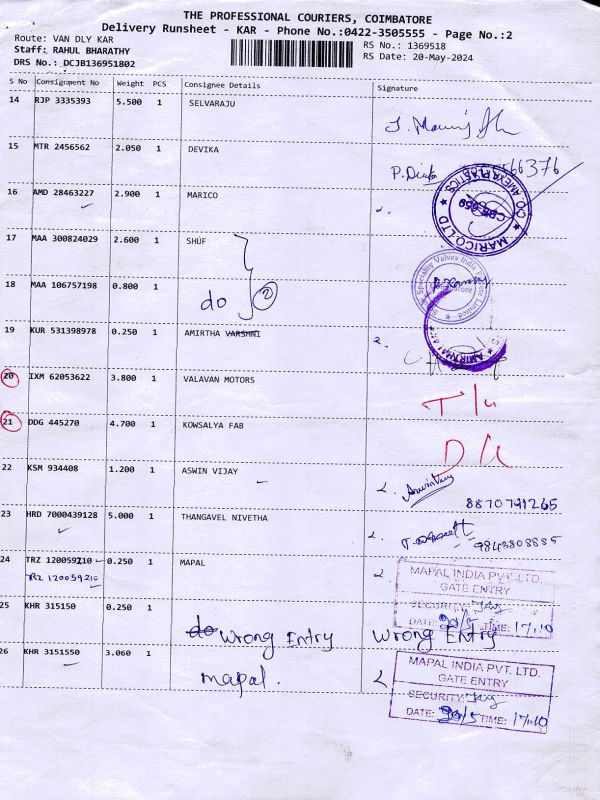 THE PROFESSIONAL COURIERS, COIMBATORE
Delivery Runsheet - KAR - Phone No.:0422-3505555 - Page No.:2
Route: VAN DLY KAR
RS No.: 1369518
Staff: RAHUL BHARATHY
RS Date: 20-May-2024
DRS No.: DCJB136951802
S No Consignment No Weight PCS Consignee Details Signature
14 RJP 3335393 5.500 1 SELVARAJU
15 MTR 2456562 2.050 1 DEVIKA
16 AMD 28463227 2.900 1 MARICO
MARICO LTD
17 MAA 300824029 2.600 1 SHUF
18 MAA 106757198 0.800 1
do 2
19 KUR 531398978 0.250 1 AMIRTHA VARSHNI
20 IXM 62053622 3.800 1 VALAVAN MOTORS
21 DDG 445270 4.700 1 KOWSALYA FAB
22 KSM 934408 1.200 1 ASWIN VIJAY
8870791265
23 HRD 7000439128 5.000 1 THANGAVEL NIVETHA
9843808885
24 TRZ 120059210 0.250 1 MAPAL
TRZ 120059210
MAPAL INDIA PVT. LTD.
GATE ENTRY
SECURITY:
DATE: 20/5 TIME: 17.10
25 KHR 315150 0.250 1
do Wrong Entry Wrong Entry
26 KHR 3151550 3.060 1
mapal.
MAPAL INDIA PVT. LTD.
GATE ENTRY
SECURITY:
DATE: 20/5 TIME: 17.10